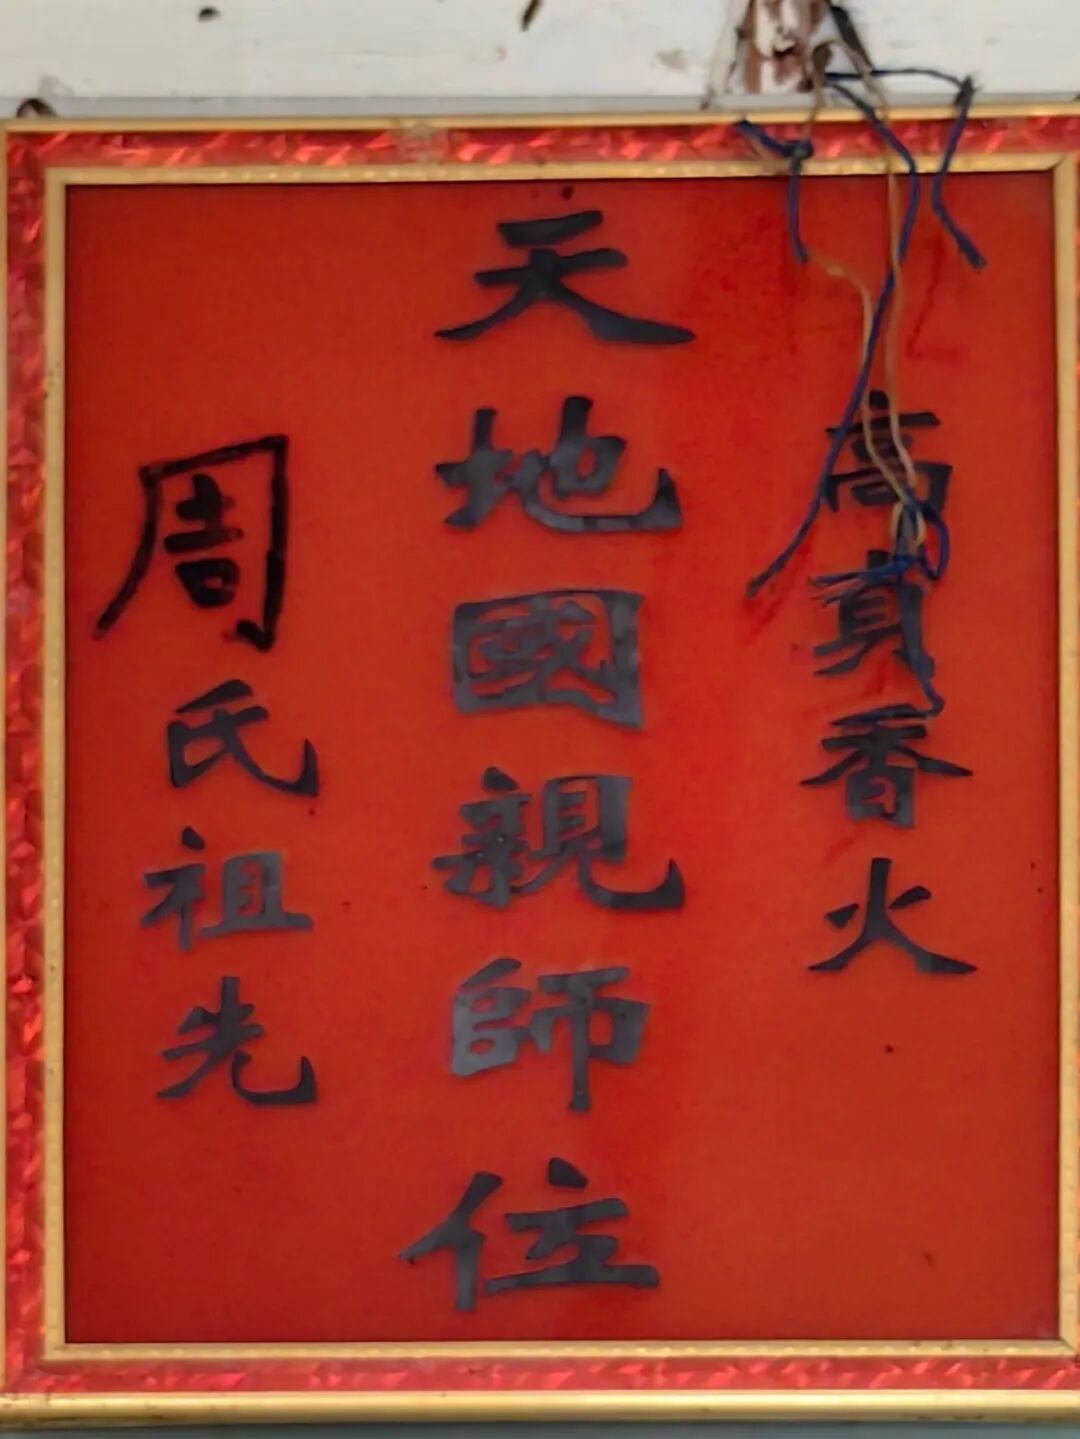 高真香火
天地國親師位
周氏祖先